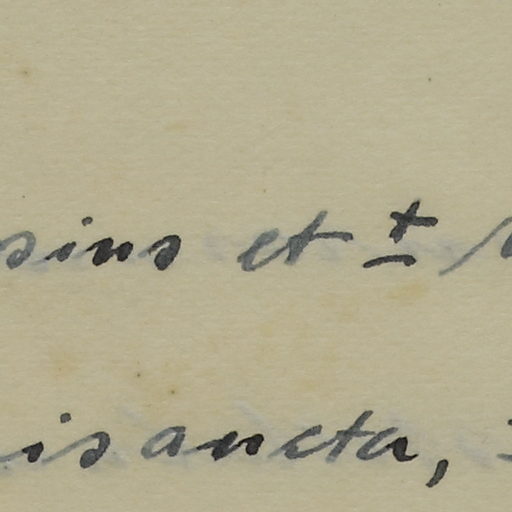 sins et ±
is ancta,